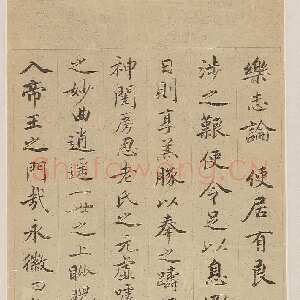 樂志論 使居有良
涉之艱使令足以息
日則享羔豚以奉之躊
神閨房思老氏之元虛
之妙曲逍遙一世之上睥
入帝王之門哉永徽